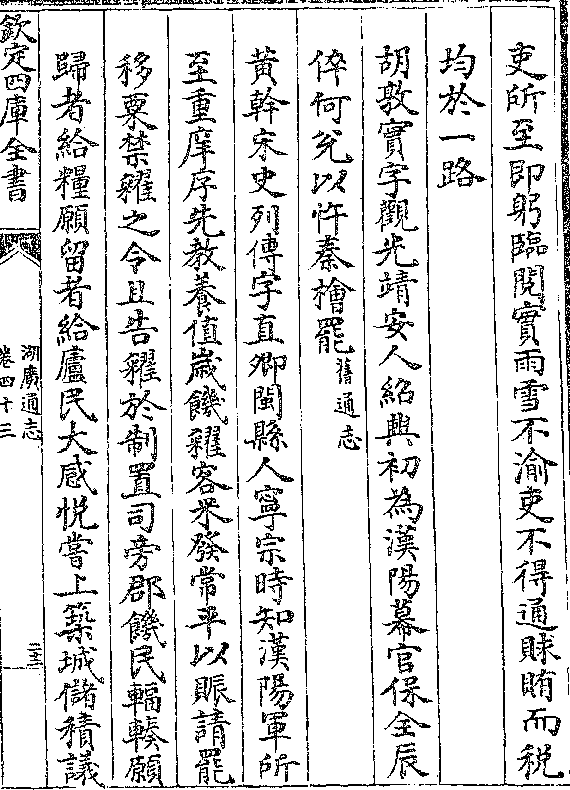 吏所至即躬臨閱實雨雪不渝吏不得通賕賄而稅
均於一路
胡敦實字觀光靖安人紹興初為漢陽幕官保全辰
倅何兊以忤秦檜罷舊通志
黃幹宋史列傳字直卿閩縣人寧宗時知漢陽軍所
至重庠序先教養值歲饑糴客米發常平以賑請罷
移粟禁糴之令且告糴於制置司旁郡饑民輻輳願
歸者給糧願留者給廬民大感悅嘗上築城儲積議
欽定四庫全書
湖廣通志
卷四十三
二十三